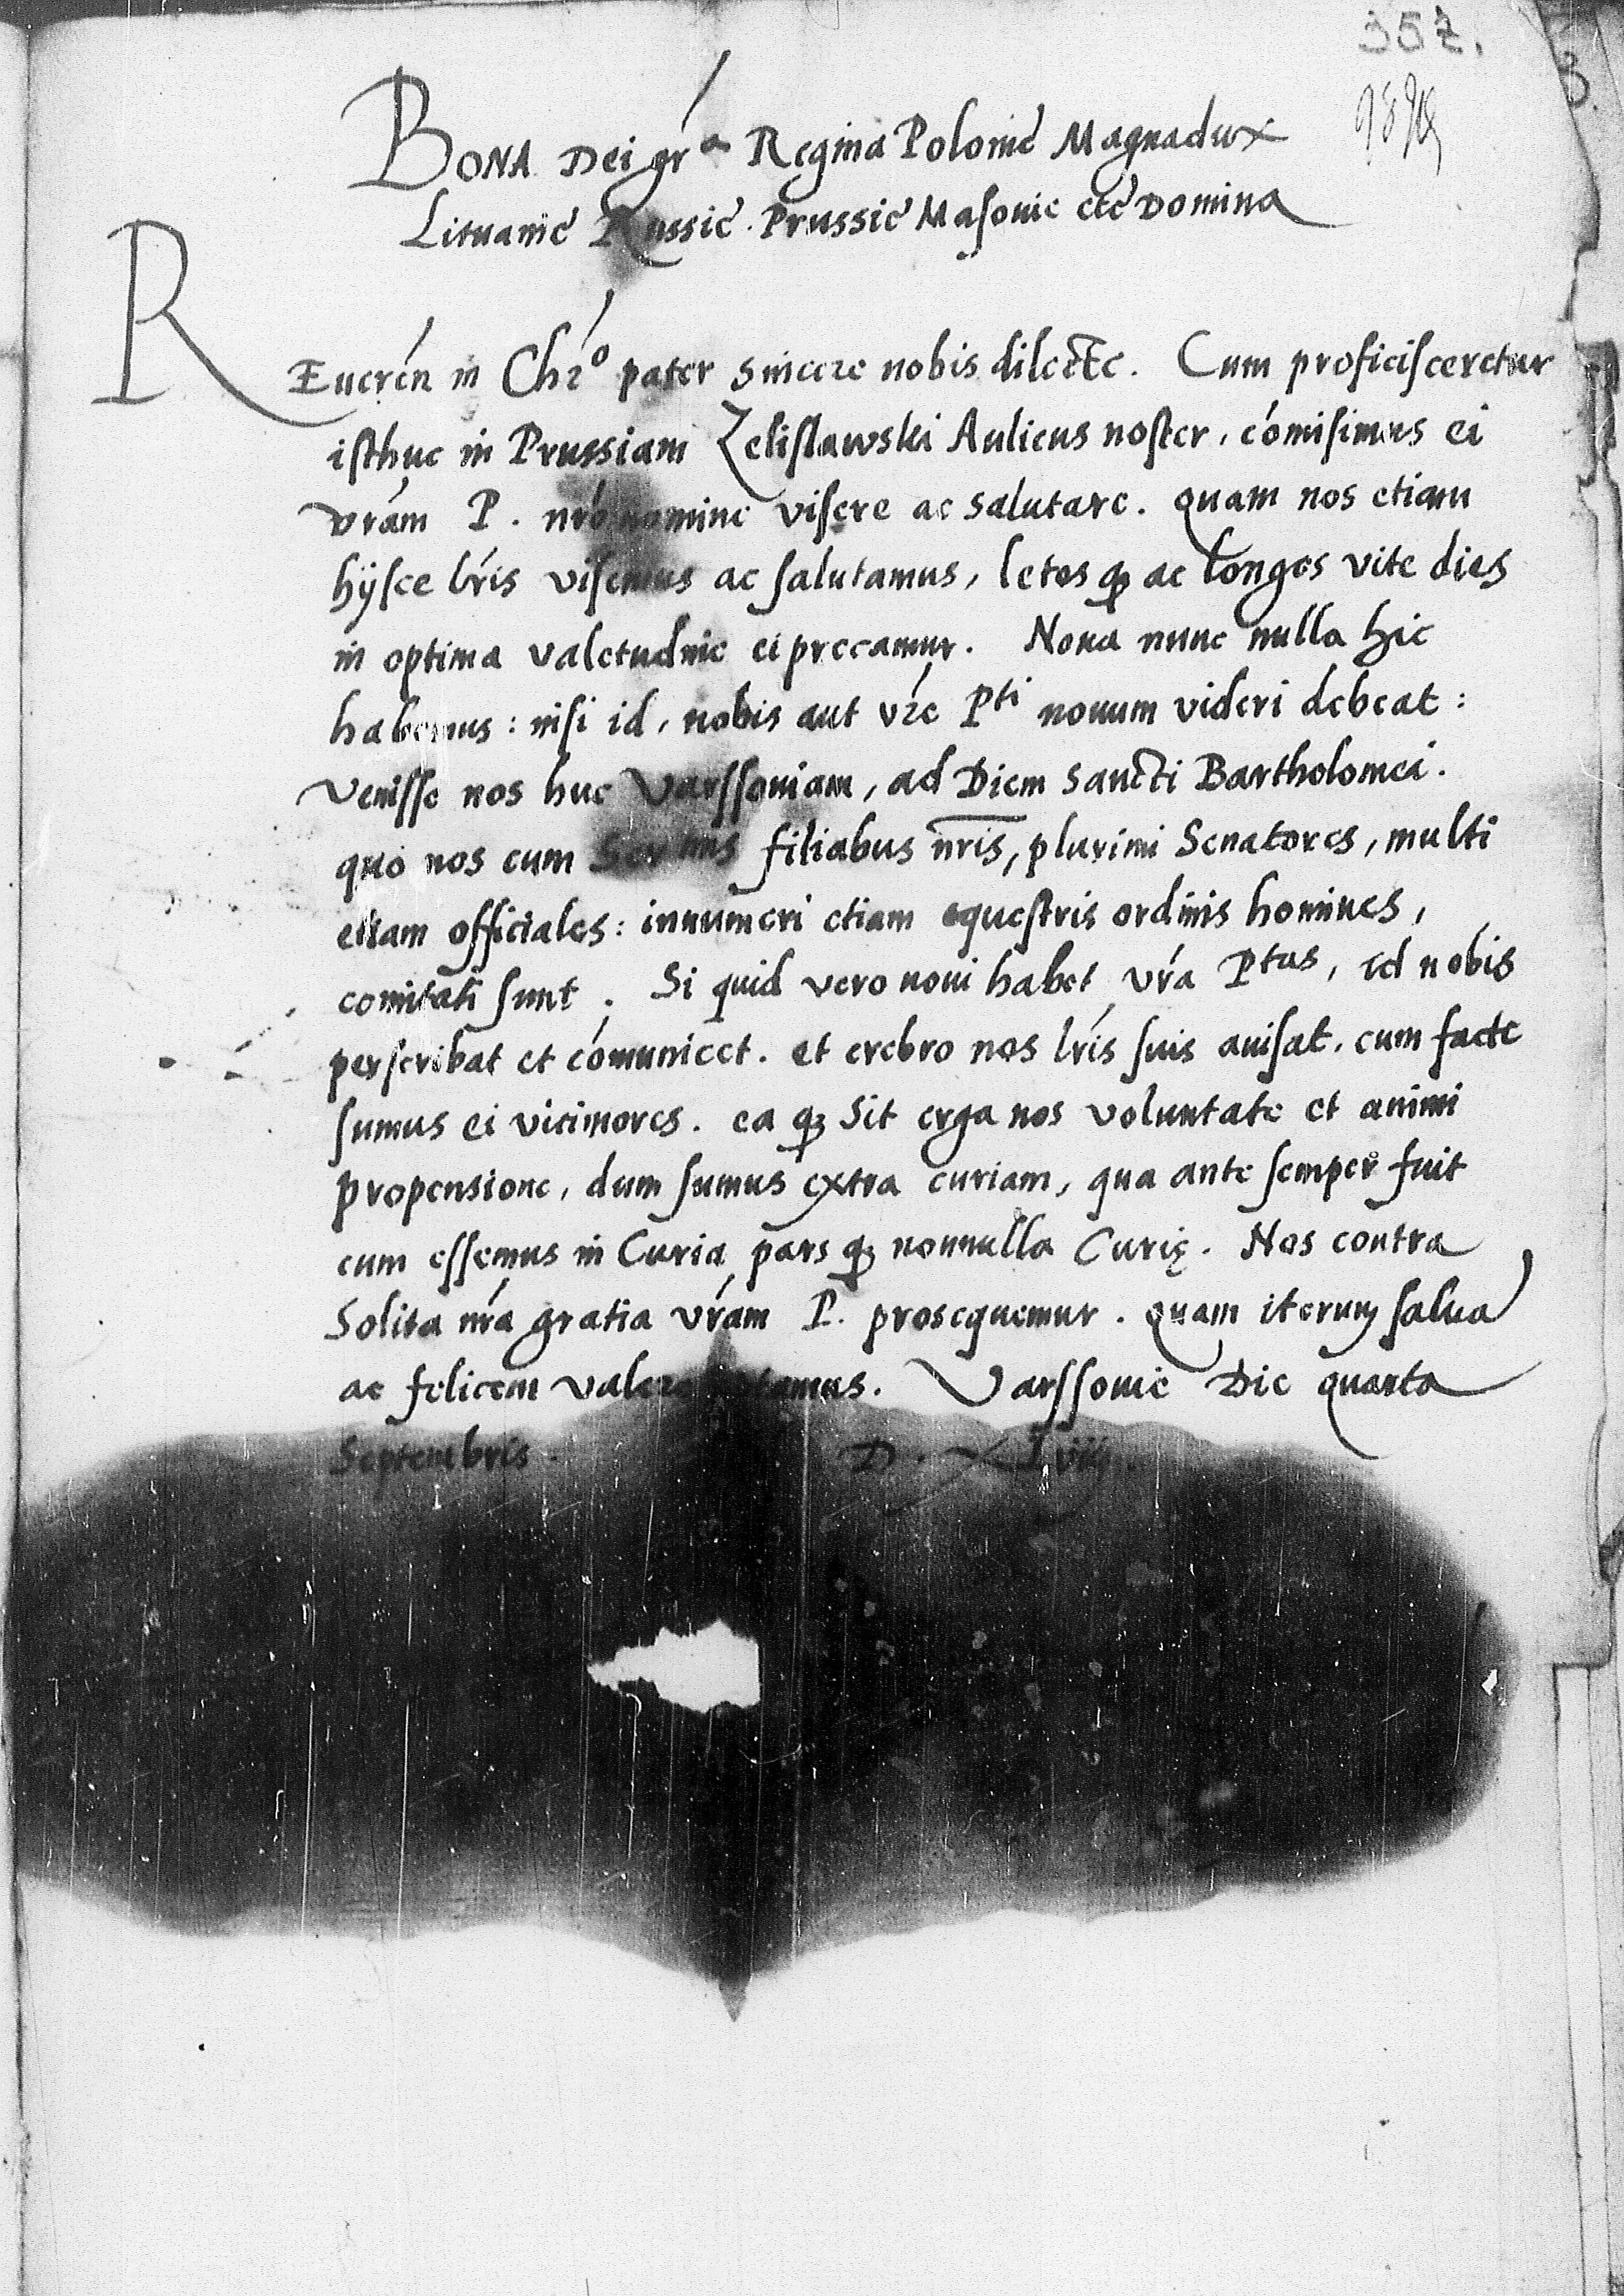 352.
BONA Dei gr̃a Regina Polonie Magnadux
Lituanie Russie Prussie Masouie etc Domina
REueren in Chr̃o pater sincere nobis dilecte. Cum proficisceretur
isthuc in Prussiam Zelislawski Aulicus noster, cómisimus ei
vrám P. nró nomine visere ac salutare. quam nos etiam
hijsce lrís visemus ac salutamus, letos q₃ ac longos vite dies
in optima valetudine ei precamur. Noua nunc nulla hic
habemus: nisi id, nobis aut vré Pti nouum videri debeat:
Venisse nos huc Varssouiam, ad Diem Sancti Bartholomei.
quo nos cum Sermis filiabus nr̃is, plurimi Senatores, multi
etiam officiales: innumeri etiam equestris ordinis homines,
comitati sunt. Si quid vero noui habet vrá Ptas, id nobis
perscribat et cómunicet. et crebro nos lrís suis auisat. cum facte
sumus ei viciniores. ea q₃ sit erga nos voluntate et animi
propensione, dum sumus extra curiam, qua ante semper fuit
cum essemus in Curia pars q₃ nonnulla Curię. Nos contra
Solita nrá gratia vrám P. prosequemur. quam iterum salua
ac felicem valere optamus. Varssouie Die quarta
Septembris. D. XLviij.